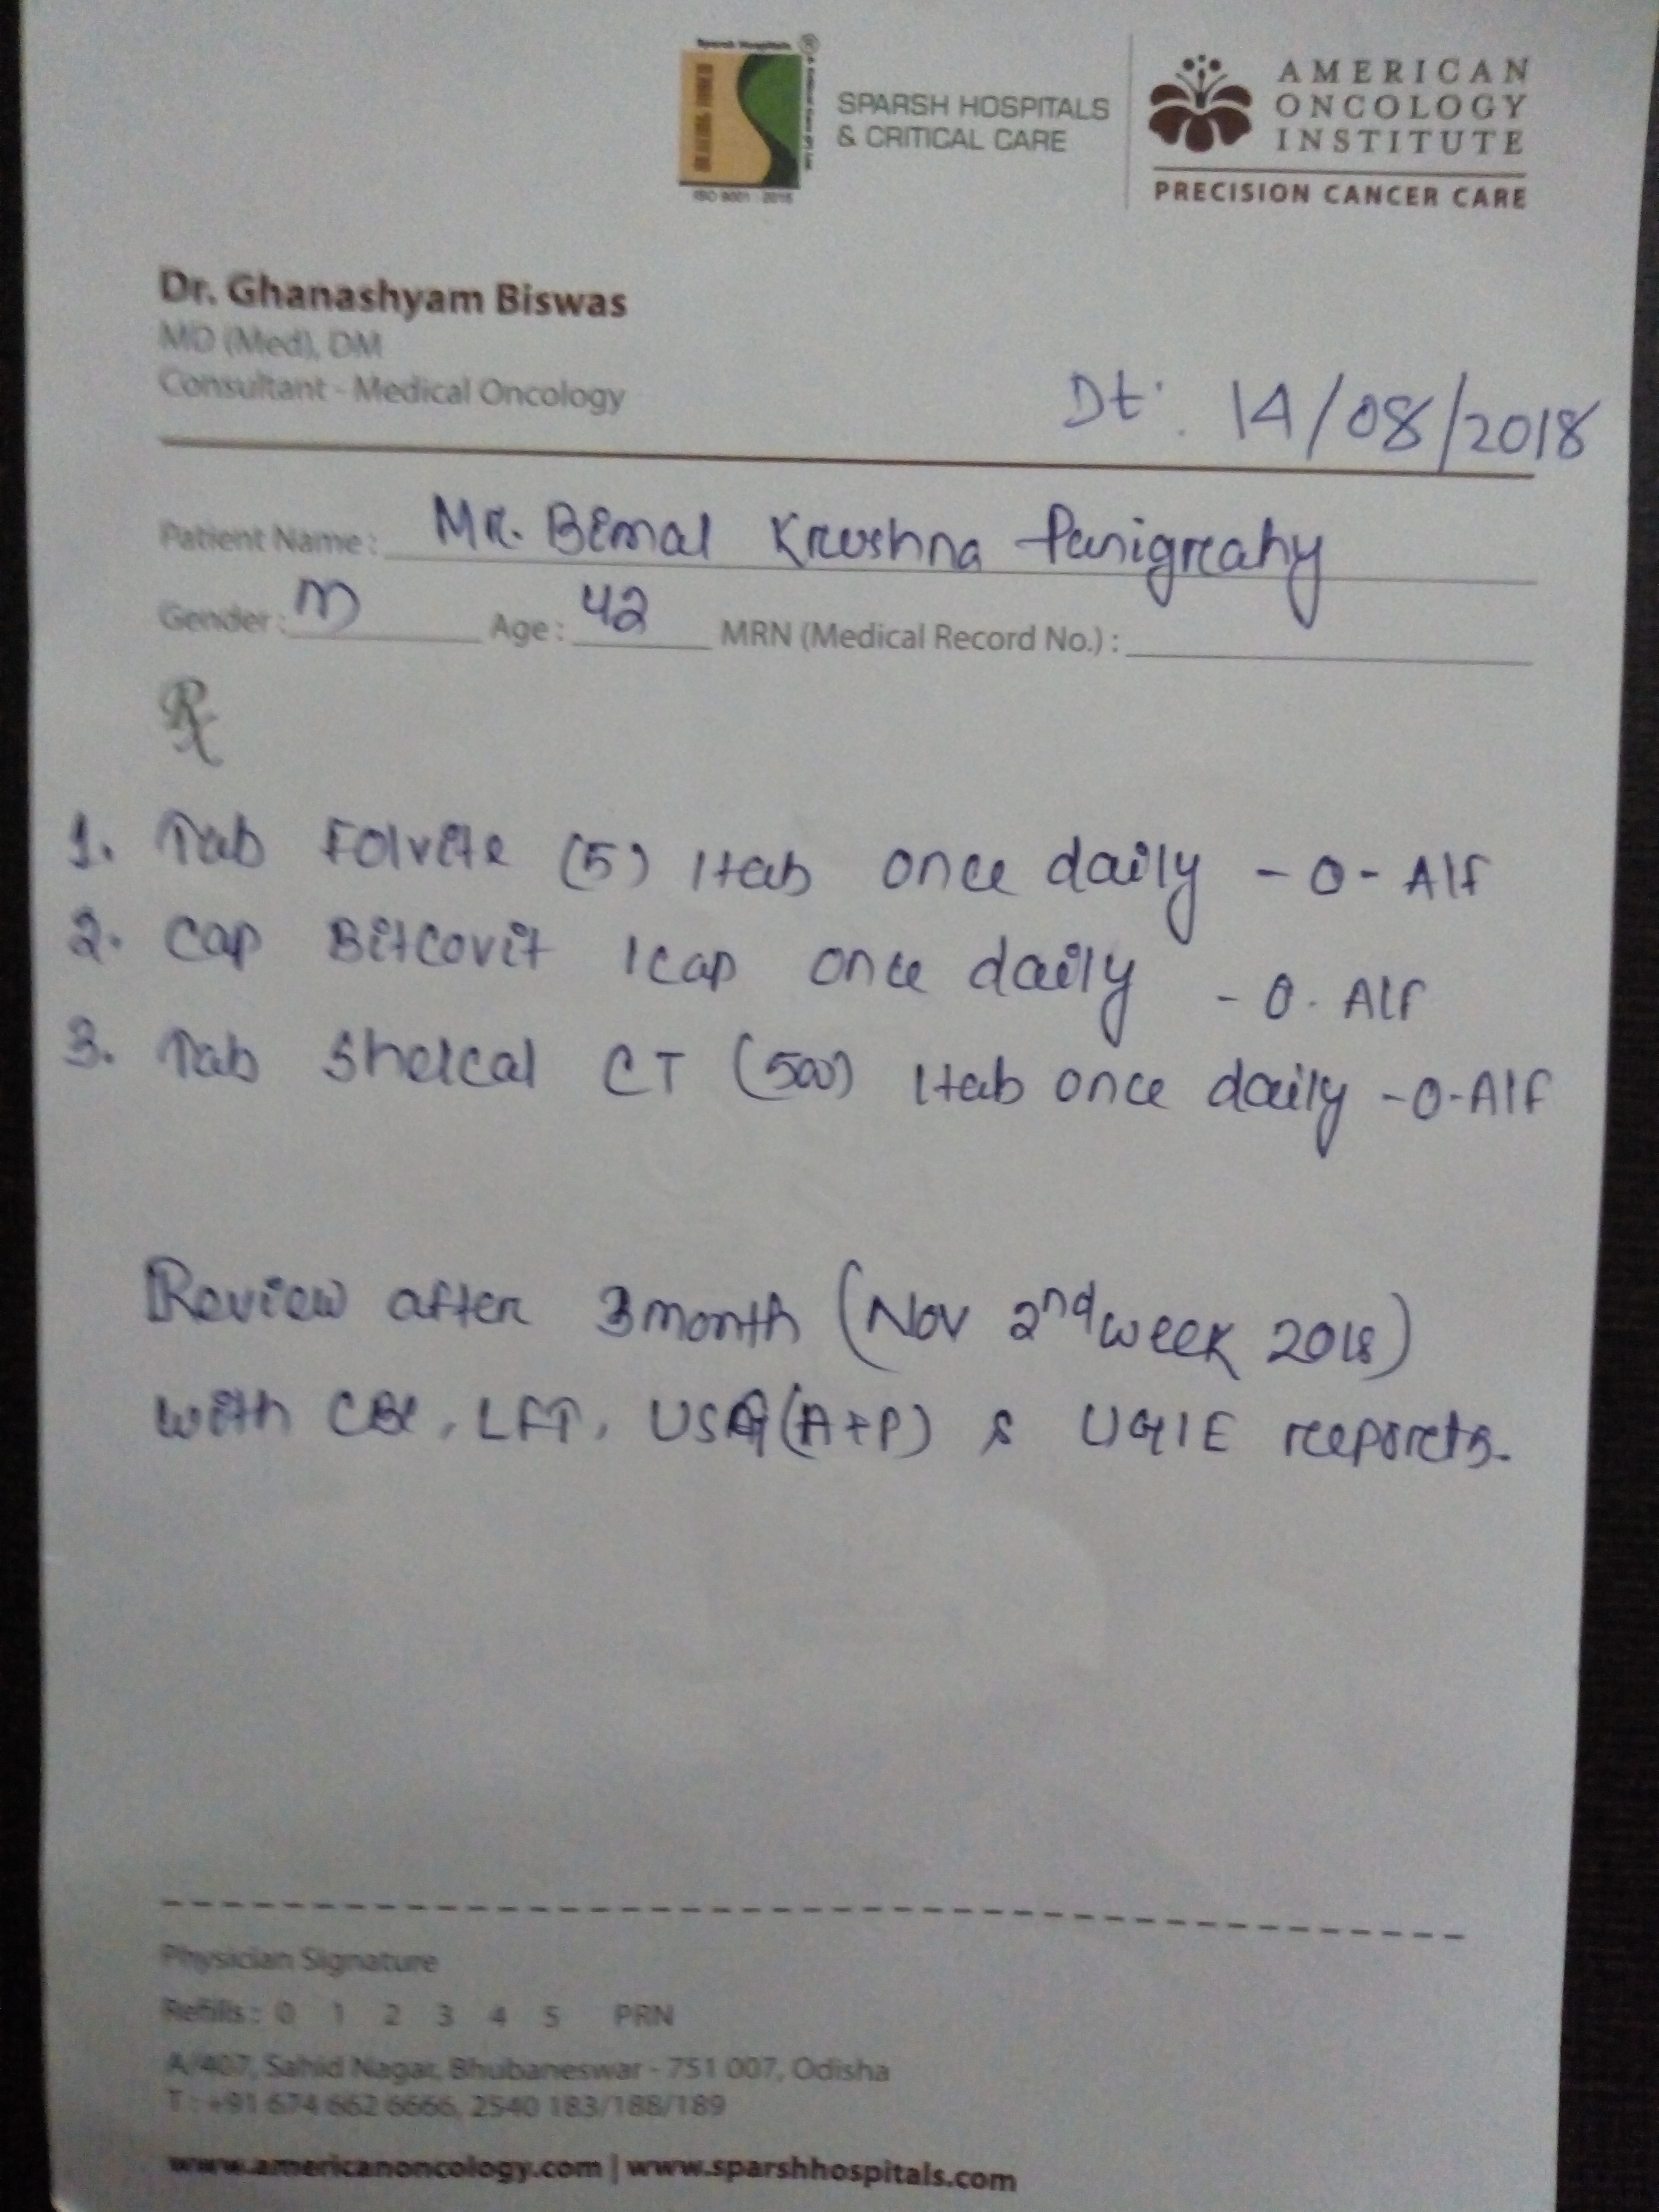 SPARSH HOSPITALS
& CRITICAL CARE
ISO 9001 : 2015
AMERICAN
ONCOLOGY
INSTITUTE
PRECISION CANCER CARE
Dr. Ghanashyam Biswas
MD (Med), DM
Consultant - Medical Oncology
Dt: 14/08/2018
Patient Name : Mr. Bimal Krushna Panigrahy
Gender : M Age : 42 MRN (Medical Record No.) :
Rx
1. Tab Folvite (5) 1tab once daily - O - Alf
2. Cap Bitcovit 1cap once daily - O. Alf
3. Tab Shelcal CT (500) 1tab once daily - O - Alf
Review after 3month (Nov 2nd week 2018)
with CBC, LFT, USG (A+P) & UGIE reports.
Physician Signature
Refills : 0 1 2 3 4 5 PRN
A/407, Sahid Nagar, Bhubaneswar - 751 007, Odisha
T : +91 674 662 6666, 2540 183/188/189
www.americanoncology.com | www.sparshhospitals.com